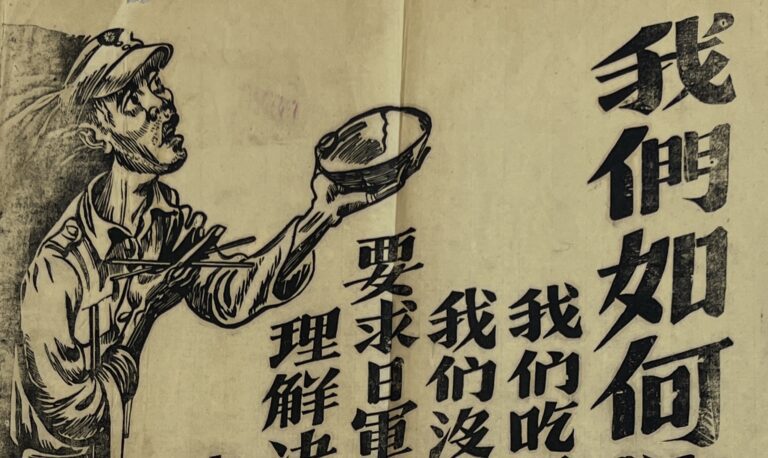 我們如何
我们吃
我们沒
要求日軍
理解